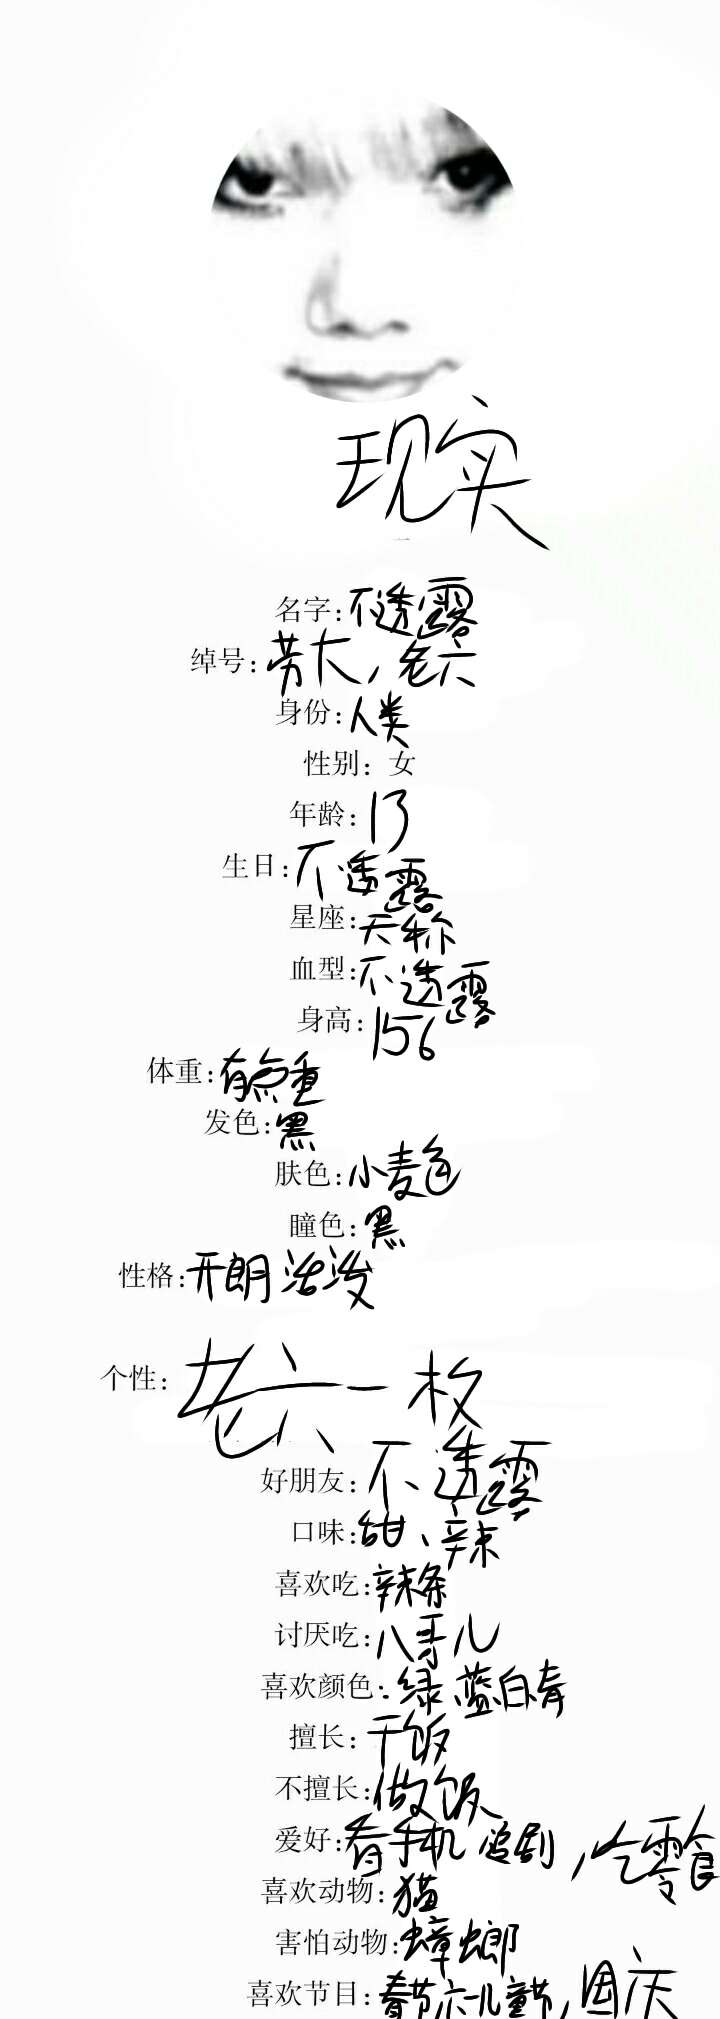 现实
名字:不透露
绰号:劳大,老六
身份:人类
性别:女
年龄:13
生日:不透露
星座:天秤
血型:不透露
身高:156
体重:有点重
发色:黑
肤色:小麦色
瞳色:黑
性格:开朗活泼
个性:老六一枚
好朋友:不透露
口味:甜、辣
喜欢吃:辣条
讨厌吃:八哥儿
喜欢颜色:绿 蓝 白 青
擅长:干饭
不擅长:做饭
爱好:看手机 追剧,吃零食
喜欢动物:猫
害怕动物:蟑螂
喜欢节目:春节六一儿童节,国庆